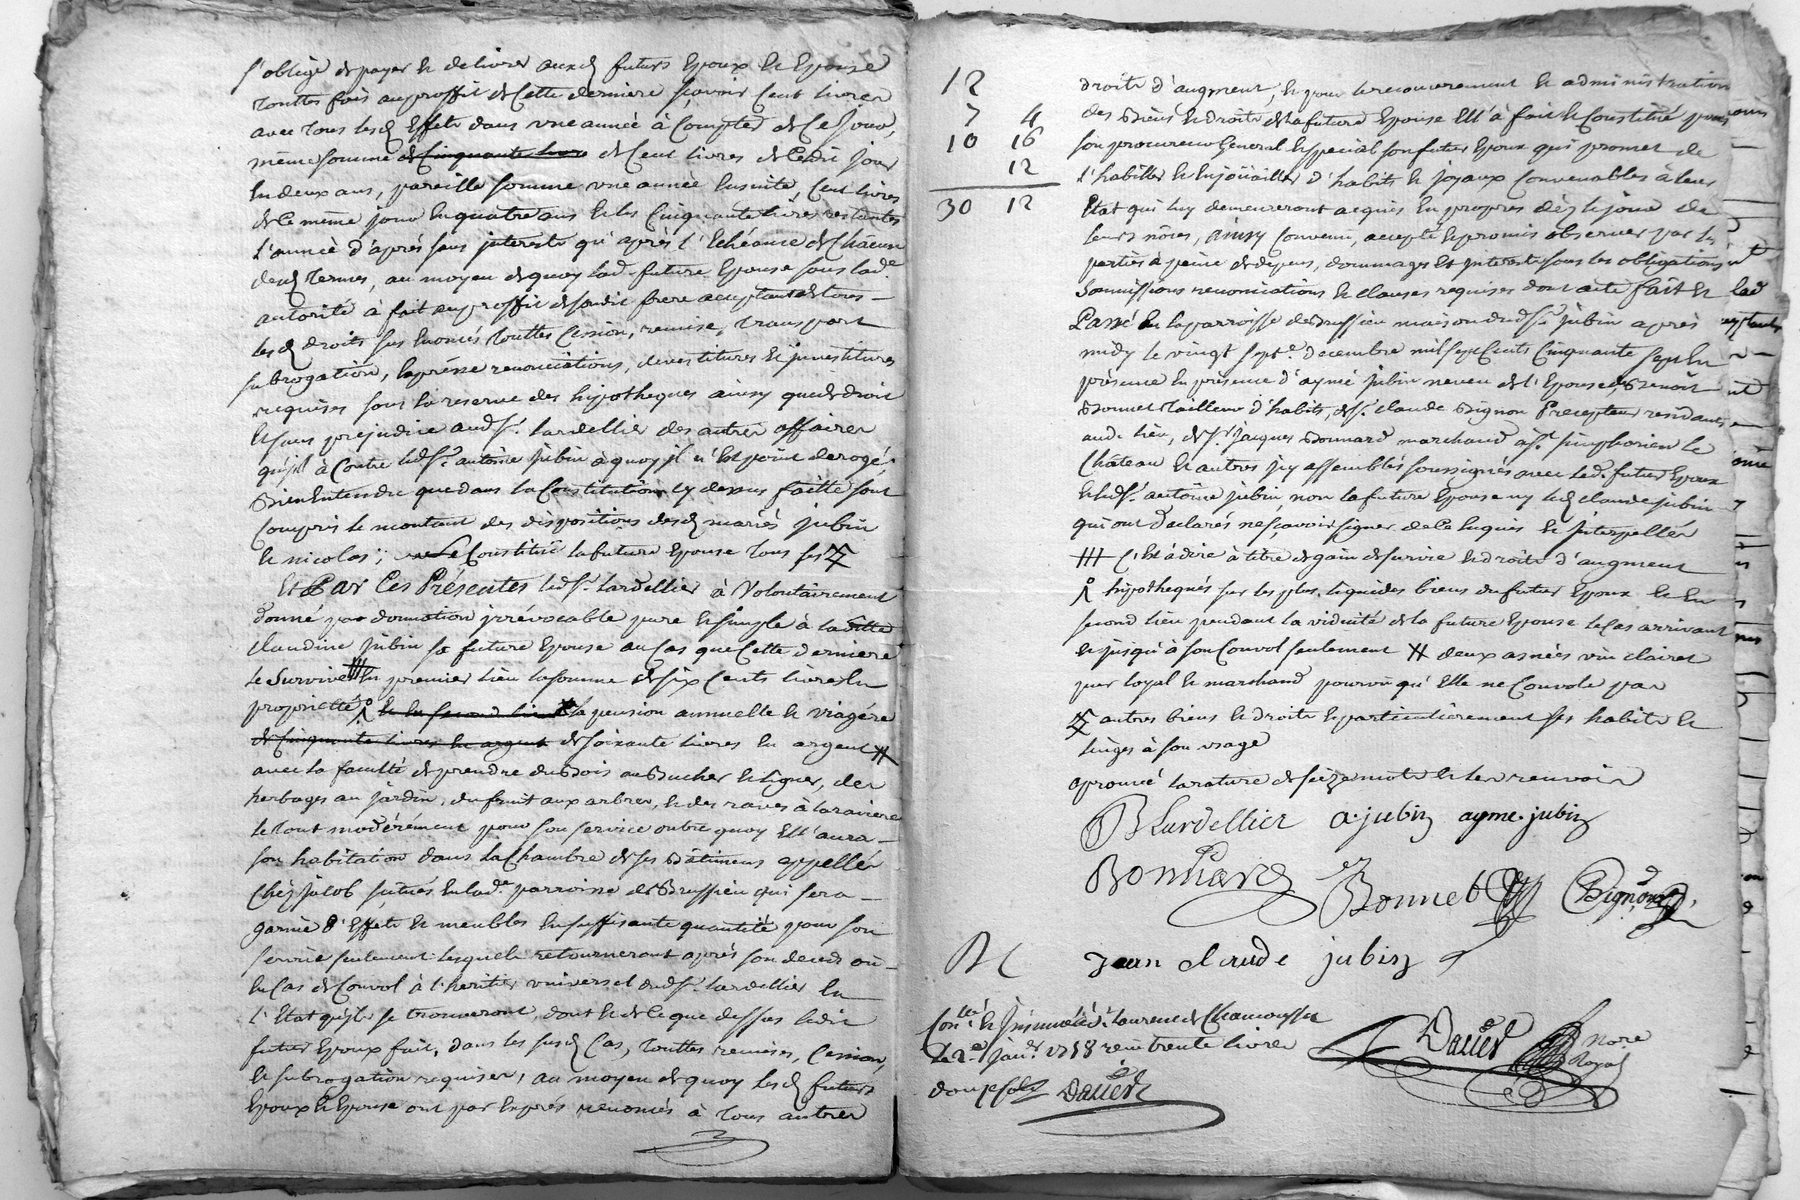 s'oblige de payer et delivrer auxd futurs Epoux et Epouse
touttes fois au proffit de Cette derniere sçavoir Cent livres
avec tous lesd Effets dans une année à Compter de Ce jour,
même somme de Cinquante livres de Cent livres de Cedit jour
En deux ans, pareille somme une année Ensuite, Cent livres
de Ce même jour En quatre ans et les Cinquante livres restantes
l'année d'après sans interests qu'après l'Echéance de Châcun
desd termes, au moyen de quoy lad. future Epouse sous lade
autorité à fait au proffit de sondit frere acceptant de tous
lesd droits sus Enoncés touttes Cession, remise, transport
subrogation, Expresse renonciations, devestitures et investitures
requises sous la reserve des hypotheques ainsy que de droit
Et sans prejudice audSr. Lardellier des autres affaires
qu'jl à Contre ledSr. antoine jubin à quoy jl n'Est point derogé;
Bien Entendre que dans la Constitution Cy dessus faitte sont
Compris le montant des dispositions desd mariés jubin
et nicolas; se Constituë la future Epouse tous ses
Et Par Ces Présentes ledSr. Lardellier à Volontairement
donné par donnation jrrévocable pure et simple à laditte
Claudine jubin sa future Epouse au Cas que Cette derniere
le Survive # En premier lieu la somme de six Cents livres En
proprietté et En second lieu la pension annuelle et viagére
de Cinquante livres En argent de soixante livres En argent #
avec la faculté de prendre du Bois au Bucher et ligner, des
herbages au jardin, du fruit aux arbres, et des raves à la raviere
le tout modérément pour son service outre quoy Ell'aura
son habitation dans la Chambre de ses Bâtimens appellée
Chez jacob situés En lade. parroisse de Brussieu qui sera
garnie d'Effets et meubles En suffisante quantité pour son
service seulement lesquels retourneront après son deceds où
En Cas de Convol à l'heritier universel dudSr. Lardellier En
l'Etat qu'jls se trouveront, dont et de Ce que dessus ledit
futur Epoux fait, dans les susd Cas, touttes remises, Cession,
et subrogation requises, au moyen de quoy lesd futurs
Epoux et Epouse ont par Exprés renoncés à tous autres
12
7 4
10 16
12
30 12
droits d'augment, Et pour le recouvrement et administration
des Biens et droits de la future Epouse Ell'à fait et Constitué pour
son procureur General et special son futur Epoux qui promet de
l'habiller et Enjoüailler d'habits et joyaux Convenables à leur
Etat qui luy demeureront acquis En propres dès le jour de
leurs nôces, ainsy Convenu, accepté et promis observer par les
parties à peine de depens, dommages Et interests sous les obligations
soumissions renonciations et clauses requises dont acte fait et
Passé En la parroisse de Brussieu maison dudSr. jubin après
midy le vingt septe. decembre mil sept Cents Cinquante sept En
présence En présence d'aymé jubin neveu de l'Epouse, de Benoît
Bonnet tailleur d'habits, de Sr. Claude Bignon Precepteur residants
aud. lieu, de Sr. jacques Bonnard marchand à St. simphorien le
Château et autres jcy assemblés soussignés avec led. futur Epoux
et ledSr. antoine jubin non la future Epouse ny led Claude jubin
qui ont declarés ne sçavoir signer de Ce Enquis et interpellés
# C'est à dire à titre de gain de survie et droits d'augment
hypothequés sur les plus liquides biens du futur Epoux et En
second lieu pendant la viduité de la future Epouse le Cas arrivant
et jusqu'à son Convol seulement # deux asnées vin clairet
pur loyal et marchand pourvû qu'Elle ne Convole pas
autres biens et droits et particulierement ses habits et
linges à son usage
aprouvé la rature de seize mots et les renvois
B Lardellier a. jubin ayme. jubin
Bonnard Bonnet Bignon
jean claude jubin
Conlé. et jnsinué à St. Laurent de Chamousset
Le 2e. janr. 1758 reçu trente livres
douze sols Daller
Daller Nore
Royal